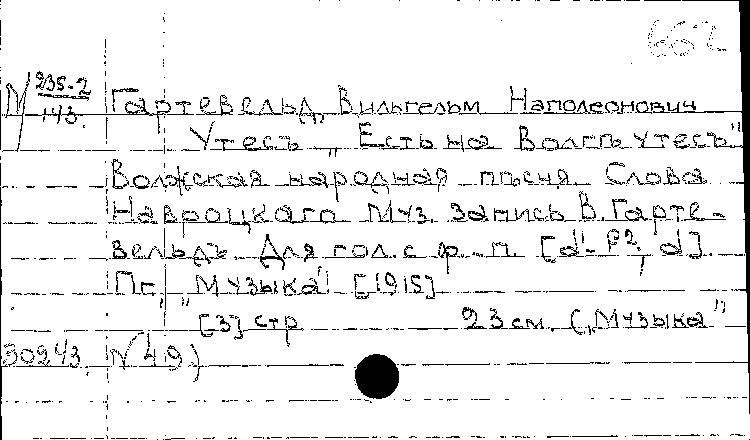 662
N 235-2
143.
Гартевельд, Вильгельм Наполеонович
Утесъ „Есть на Волгѣ утесъ"
Волжская народная пѣсня. Слова
Навроцкаго Муз. запись В. Гарте-
вельдъ. Для гол. с ф.-п. [d¹-f², d].
Пг, „Музыка" [1915]
[3] стр 23 см. („Музыка"
N 49)